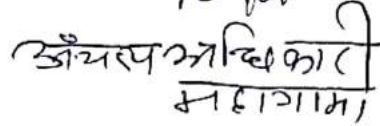 अँचल अधिकारी
महागामा